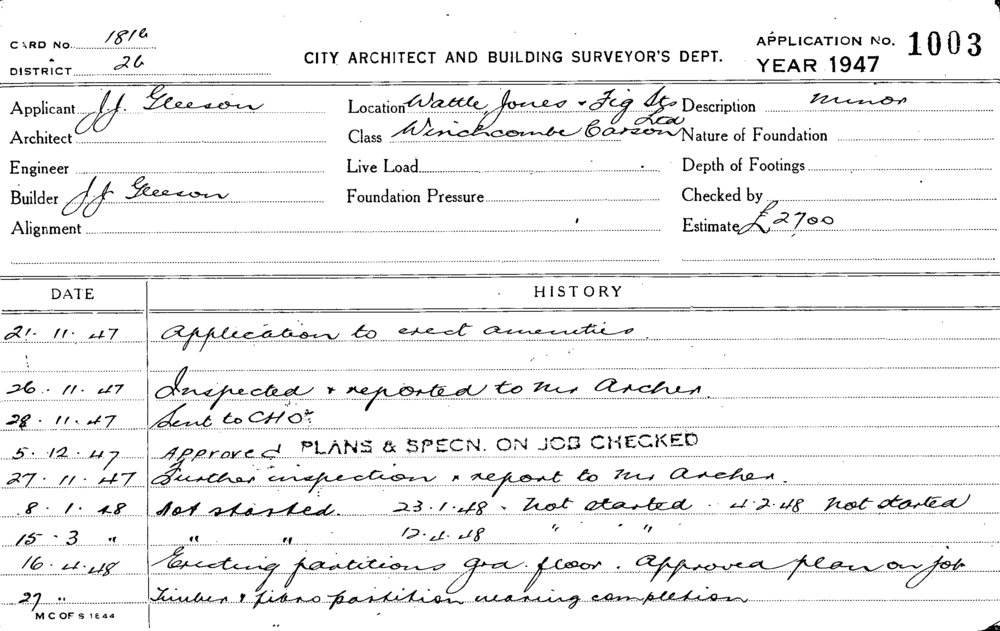 CARD No. 181b
DISTRICT 26
CITY ARCHITECT AND BUILDING SURVEYOR'S DEPT.
APPLICATION No. 1003
YEAR 1947
Applicant J.J. Gleeson
Location Wattle, Jones & Fig Sts
Description Minor
Architect
Class Winchcombe Carson Ltd
Nature of Foundation
Engineer
Live Load
Depth of Footings
Builder J J Gleeson
Foundation Pressure
Checked by
Alignment
Estimate £2700
DATE HISTORY
21. 11. 47 Application to erect amenities
26. 11. 47 Inspected & reported to Mr Archer.
28. 11. 47 Sent to CHO
5. 12. 47 Approved PLANS & SPECN. ON JOB CHECKED
27. 11. 47 Further inspection & report to Mr Archer.
8. 1. 48 Not started. 23.1.48. Not started. 4.2.48 Not started
15. 3 " " " 12.4.48 " " "
16. 4. 48 Erecting partitions grd. floor. Approved plan on job
27 " Timber & fibro partition nearing completion
M C OF S 1844